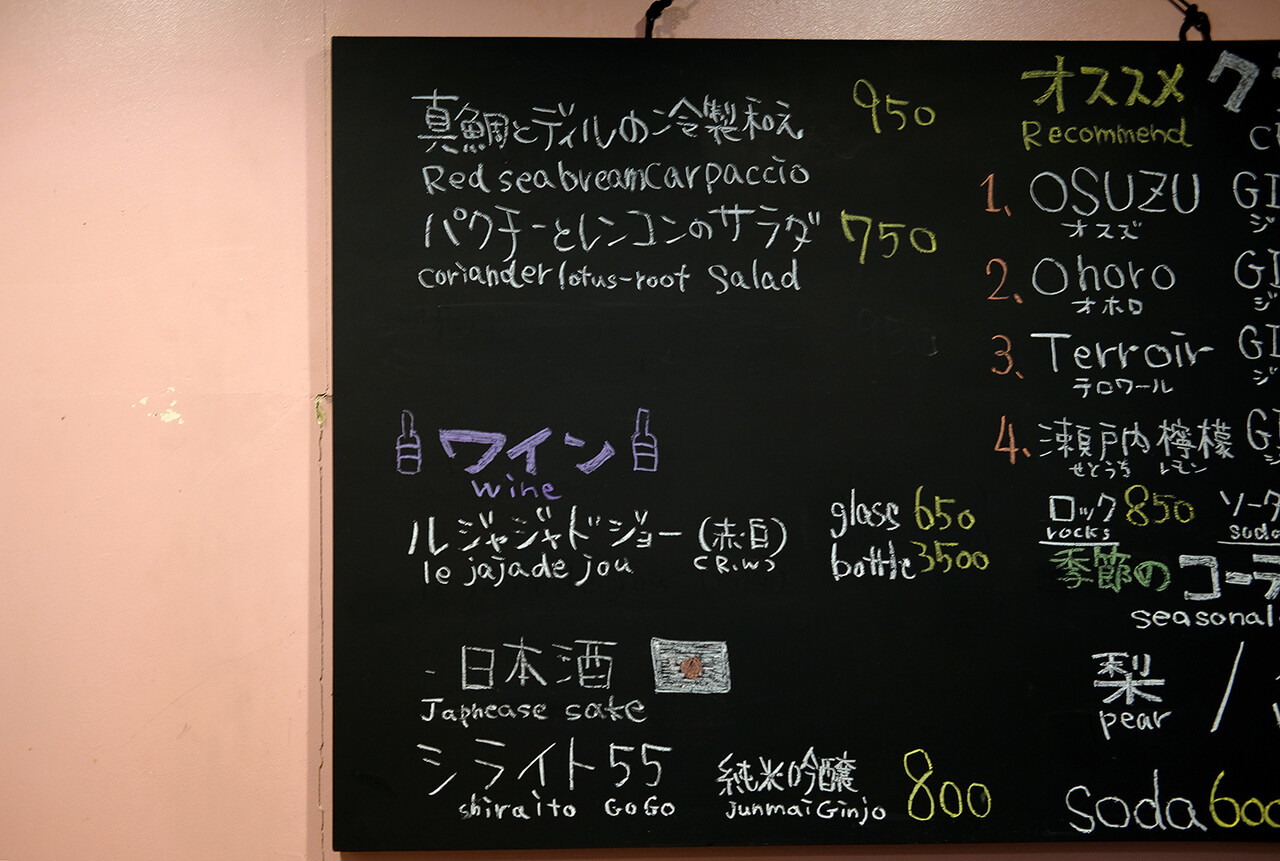 真鯛とディルの冷製和え 950
Red seabream carpaccio
パクチーとレンコンのサラダ 750
coriander lotus-root Salad
ワイン
wine
ルジャジャドジョー(赤・白) glass 650
le jajade jou (R.W) bottle 3500
日本酒
Japnease sake
シライト55 純米吟醸 800
shiraito GoGo Junmai Ginjo
オススメ
Recommend
1. OSUZU
オスズ
2. Ohoro
オホロ
3. Terroir
テロワール
4. 瀬戸内檸檬
せとうち レモン
ロック 850
rocks
季節の
seasonal
梨 /
pear
soda 600